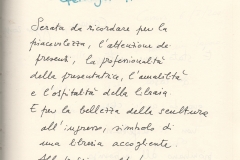 Serata da ricordare per la
piacevolezza, l'attenzione dei
presenti, la professionalità
della presentatrice, l'amabilità
e l'ospitalità della libraia.
E per la bellezza della scultura
all'ingresso, simbolo di
una libreria accogliente.